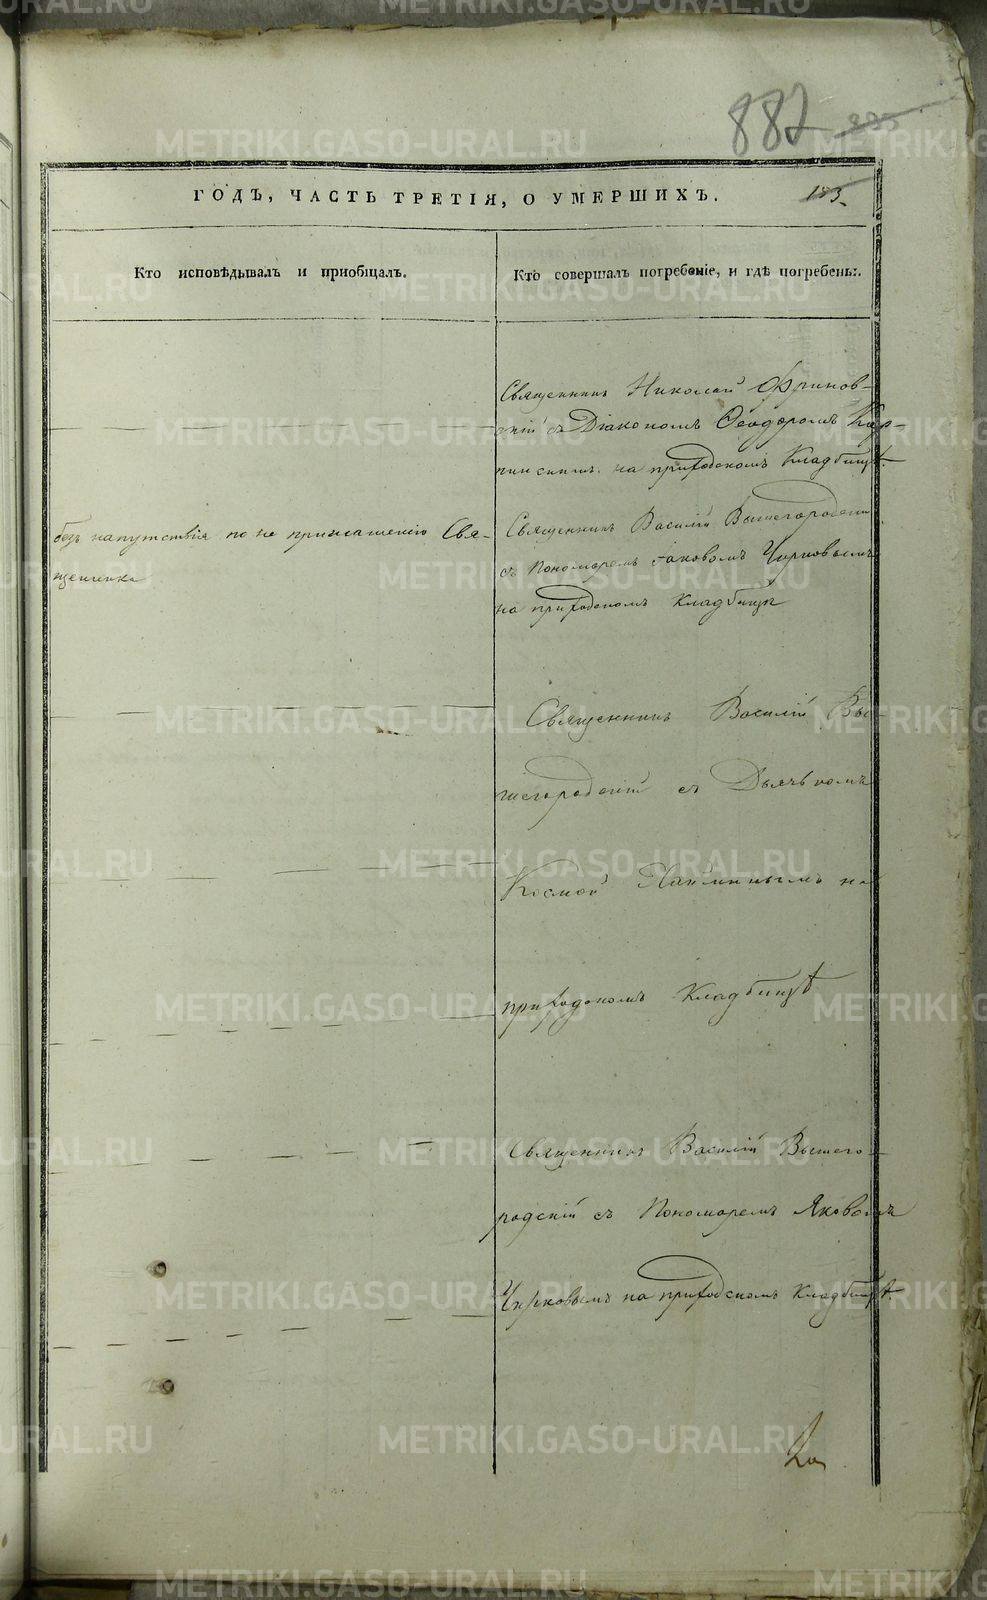 METRIKI.GASO-URAL.RU
887
ГОДЪ, ЧАСТЬ ТРЕТІЯ, О УМЕРШИХЪ.
Кто исповѣдывалъ и пріобщалъ.
Кто совершалъ погребеніе, и гдѣ погребены.
Священникъ Николай Фринов-
скій съ Діакономъ Ѳеодоромъ Кар-
пинскимъ на приходскомъ Кладбищѣ.
безъ напутствія по не приглашенію Свя-
щенника
Священникъ Василій Вышегородскій
съ Пономаремъ Іаковомъ Чирковымъ
на приходскомъ кладбищѣ
Священникъ Василій Вы-
шегородскій съ Дьячкомъ
Космой на
приходскомъ Кладбищѣ
Священникъ Василій Вышего-
родскій съ Пономаремъ Яковомъ
Чирковымъ на приходскомъ кладбищѣ